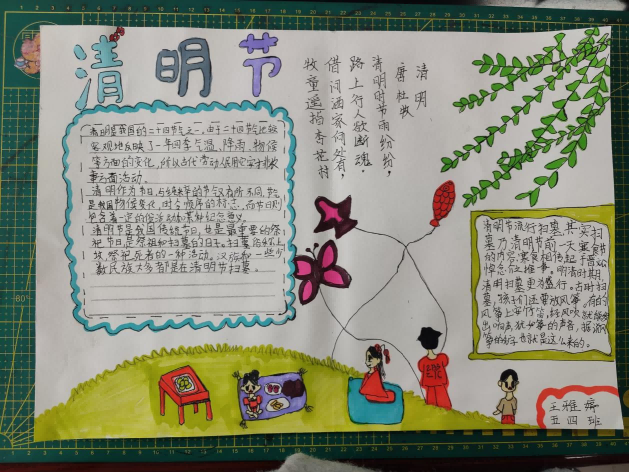 清明节
清明
唐 杜牧
清明时节雨纷纷，
路上行人欲断魂。
借问酒家何处有，
牧童遥指杏花村
清明是我国的二十四节气之一，由于二十四节气比较
客观地反映了一年四季气温、降雨、物候
等方面的变化，所以古代劳动人民用它安排农
事方面活动。
清明作为节日，与纯粹的节气又有所不同，节气
是我国物候变化、时令顺序的标志，而节日则
包含着一定的俗活动和某种纪念意义。
清明节是我国传统节日，也是最重要的祭
祀节日，是祭祖和扫墓的日子。扫墓俗称上
坟，祭祀死者的一种活动。汉族和一些少
数民族大多都是在清明节扫墓。
清明节流行扫墓，其实扫
墓乃清明节前一天寒食节
的内容，寒食相传起于晋文公
悼念介推事。明清时期，
清明扫墓更为盛行。古时扫
墓，孩子们还要放风筝。有的
风筝上安竹笛，经风吹就能够发
出响声，犹如筝的声音，据说风
筝的名字也就是这么来的。
王雅婷
五四班